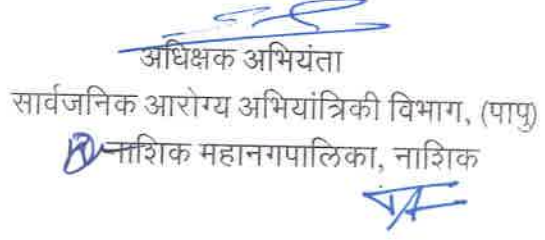 अधिक्षक अभियंता
सार्वजनिक आरोग्य अभियांत्रिकी विभाग, (पापु)
नाशिक महानगपालिका, नाशिक